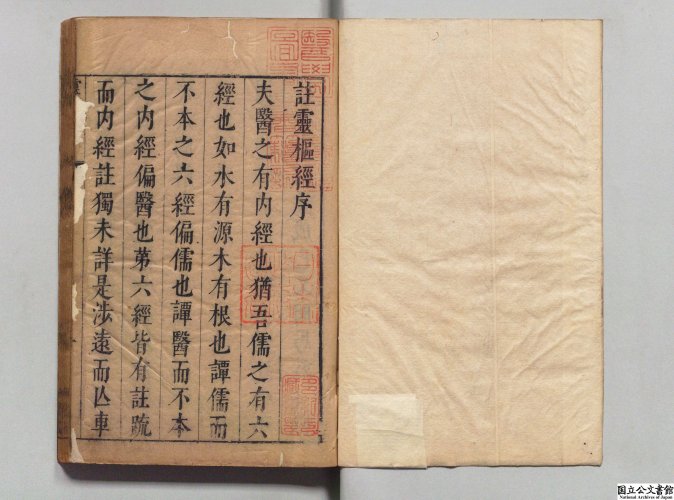 註靈樞經序
夫醫之有内經也猶吾儒之有六
經也如水有源木有根也譚儒而
不本之六經偏儒也譚醫而不本
之内經偏醫也第六經皆有註疏
而内經註獨未詳是渉遠而亾車
国立公文書館
National Archives of Japan